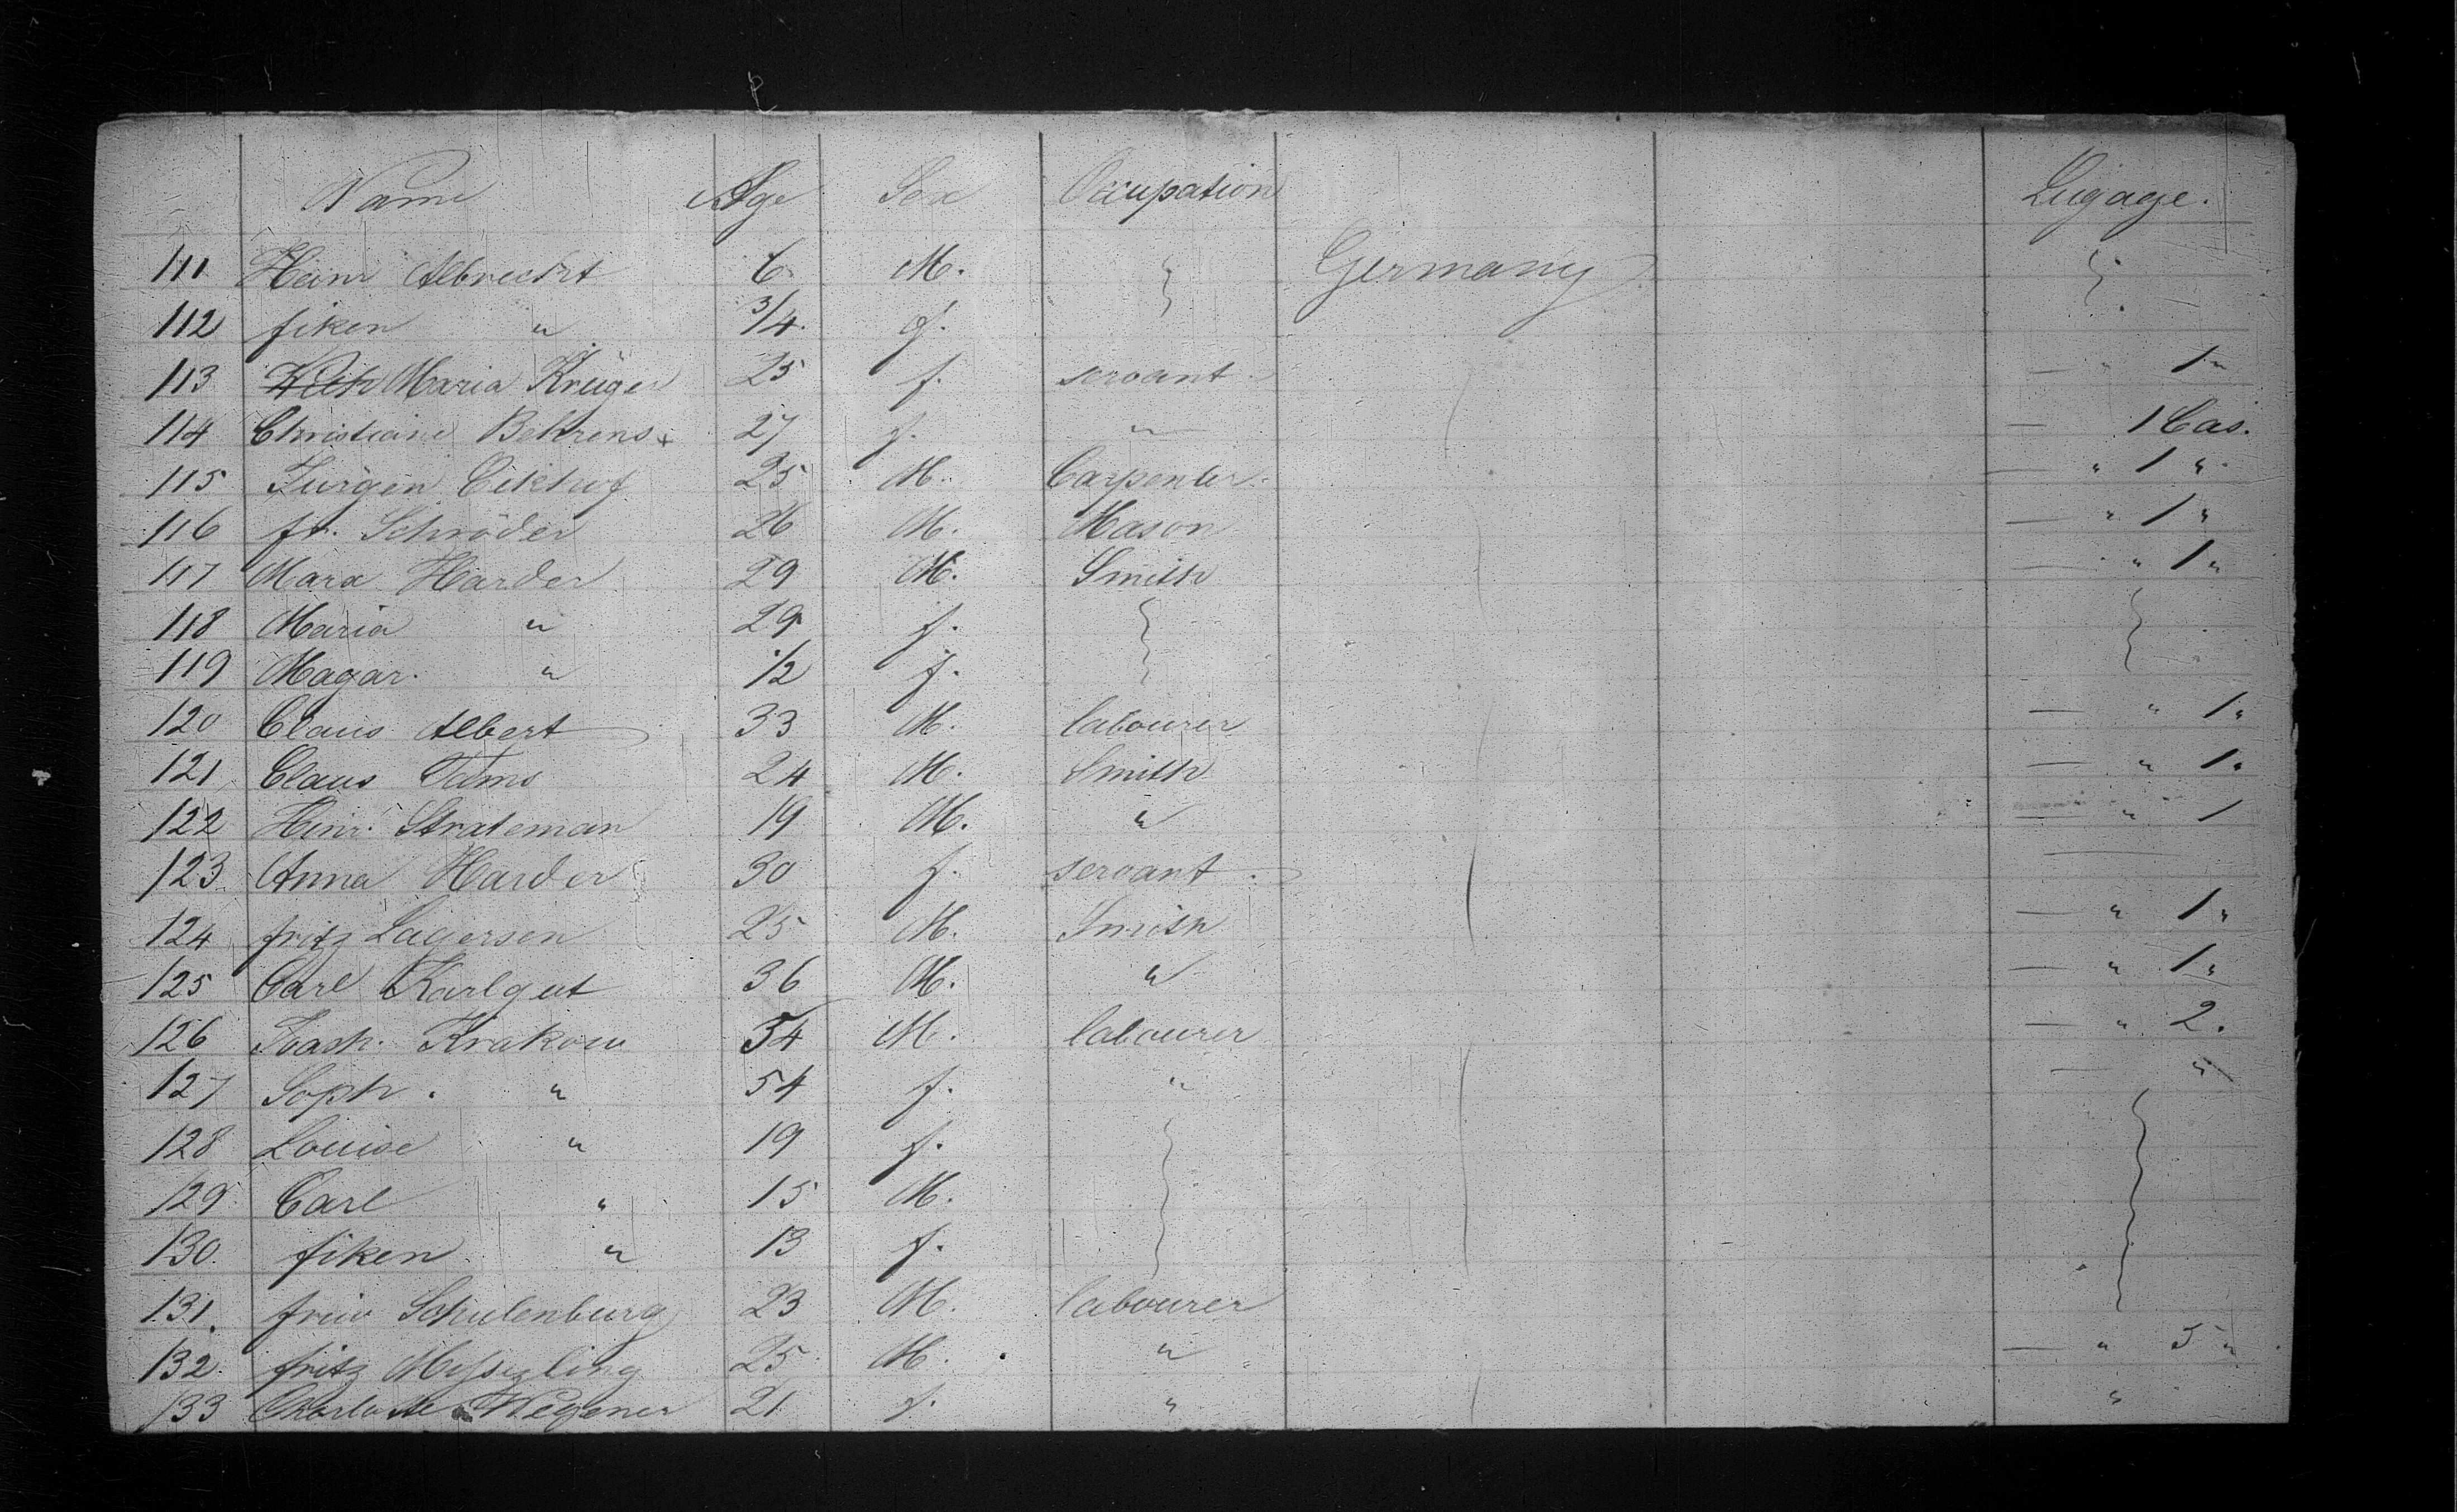 Name Age Sex Occupation Lugage.
111 Heinr Albrecht 6 M. Germany
112 fiken " 3/4. f.
113 Maria Krüger 25 f. servant 1 "
114 Christiane Behrens 27 f. " 1 Cas.
115 Jürgen 25 M. Carpenter " 1 "
116 fr. Schröder 26 M. Mason " 1 "
117 Harder 29 M. Smith " 1 "
118 Maria " 29 f.
119 Magar. " 1/2 f.
120 Claus Albert 33 M. labourer " 1 "
121 Claus Tams 24 M. Smith " 1 "
122 Heinr. Strateman 19 M. " " 1
123 Anna Harder 30 f. servant
124 fritz 25 M. Smith " 1 "
125 Carl Karlgut 36 M. " " 1 "
126 Joach. Krakow 54 M. labourer " 2.
127 Soph. " 54 f. " "
128 Louise " 19 f.
129 Carl " 15 M.
130. fiken " 13 f.
131. Schulenburg 23 M. labourer
132. fritz 25 M. " " 5 "
133 Charlotte Wegener 21 f. " "